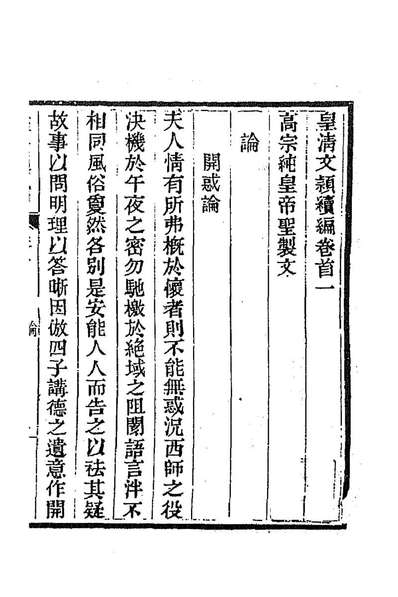 皇清文穎續編卷首一
高宗純皇帝聖製文
論
開惑論
夫人情有所弗概於懷者則不能無惑況西師之役
決機於午夜之密勿馳檄於絶域之阻閡語言泮不
相同風俗敻然各别是安能人人而告之以祛其疑
故事以問明理以答晰因倣四子講德之遺意作開
論